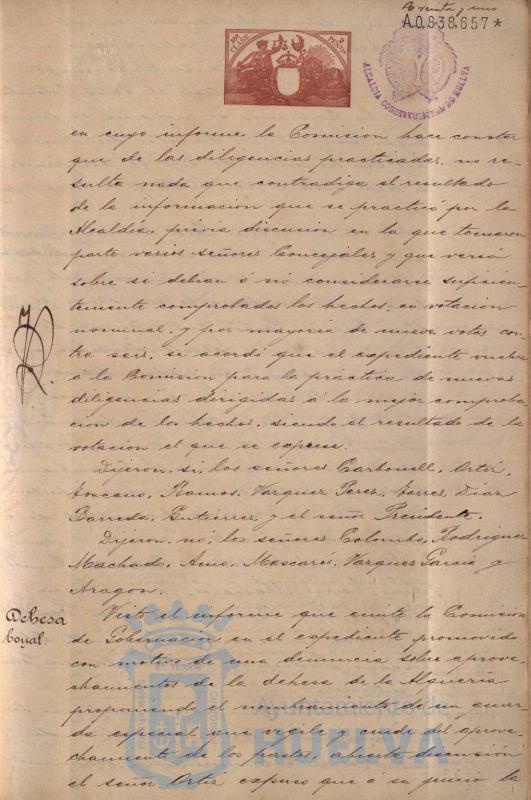 Treinta y uno
A.0.838,657*
10ª CLASE
2 PESETAS
ALCALDIA CONSTITUCIONAL DE HUELVA
en cuyo informe la Comision hace constar
que de las diligencias practicadas, no re-
sulta nada que contradiga el resultado
de la informacion que se practicó por la
Alcaldia, prévia discusion en la que tomaron
parte varios señores Concejales y que versó
sobre si debian ó nó considerarse suficien-
temente comprobados los hechos, en votacion
nominal, y por mayoria de nueve votos con-
tra seis, se acordó que el expediente vuelva
á la Comision para la práctica de nuevas
diligencias dirigidas á la mejor comproba-
cion de los hechos, siendo el resultado de la
votacion el que se expresa:
Dijeron, si, los señores Carbonell, Ortiz,
Toscano, Ramos, Vazquez Perez, Torres, Diaz
Barreda, Gutierrez y el señor Presidente.
Dijeron, nó, los señores Colombo, Rodriguez
Machado, Amo, Mascarós, Vazquez Garcia y
Aragon.
Dehesa
boyal.
Visto el informe que emite la Comision
de Gobernacion en el expediente promovido
con motivo de una denuncia sobre aprove-
chamientos de la dehesa de la Alqueria
proponiendo el nombramiento de un guar-
da especial que vigile y cuide del aprove-
chamiento de los pastos, abierta discusion
el señor Ortiz expuso que á su juicio la
Ayuntamiento de
HUELVA